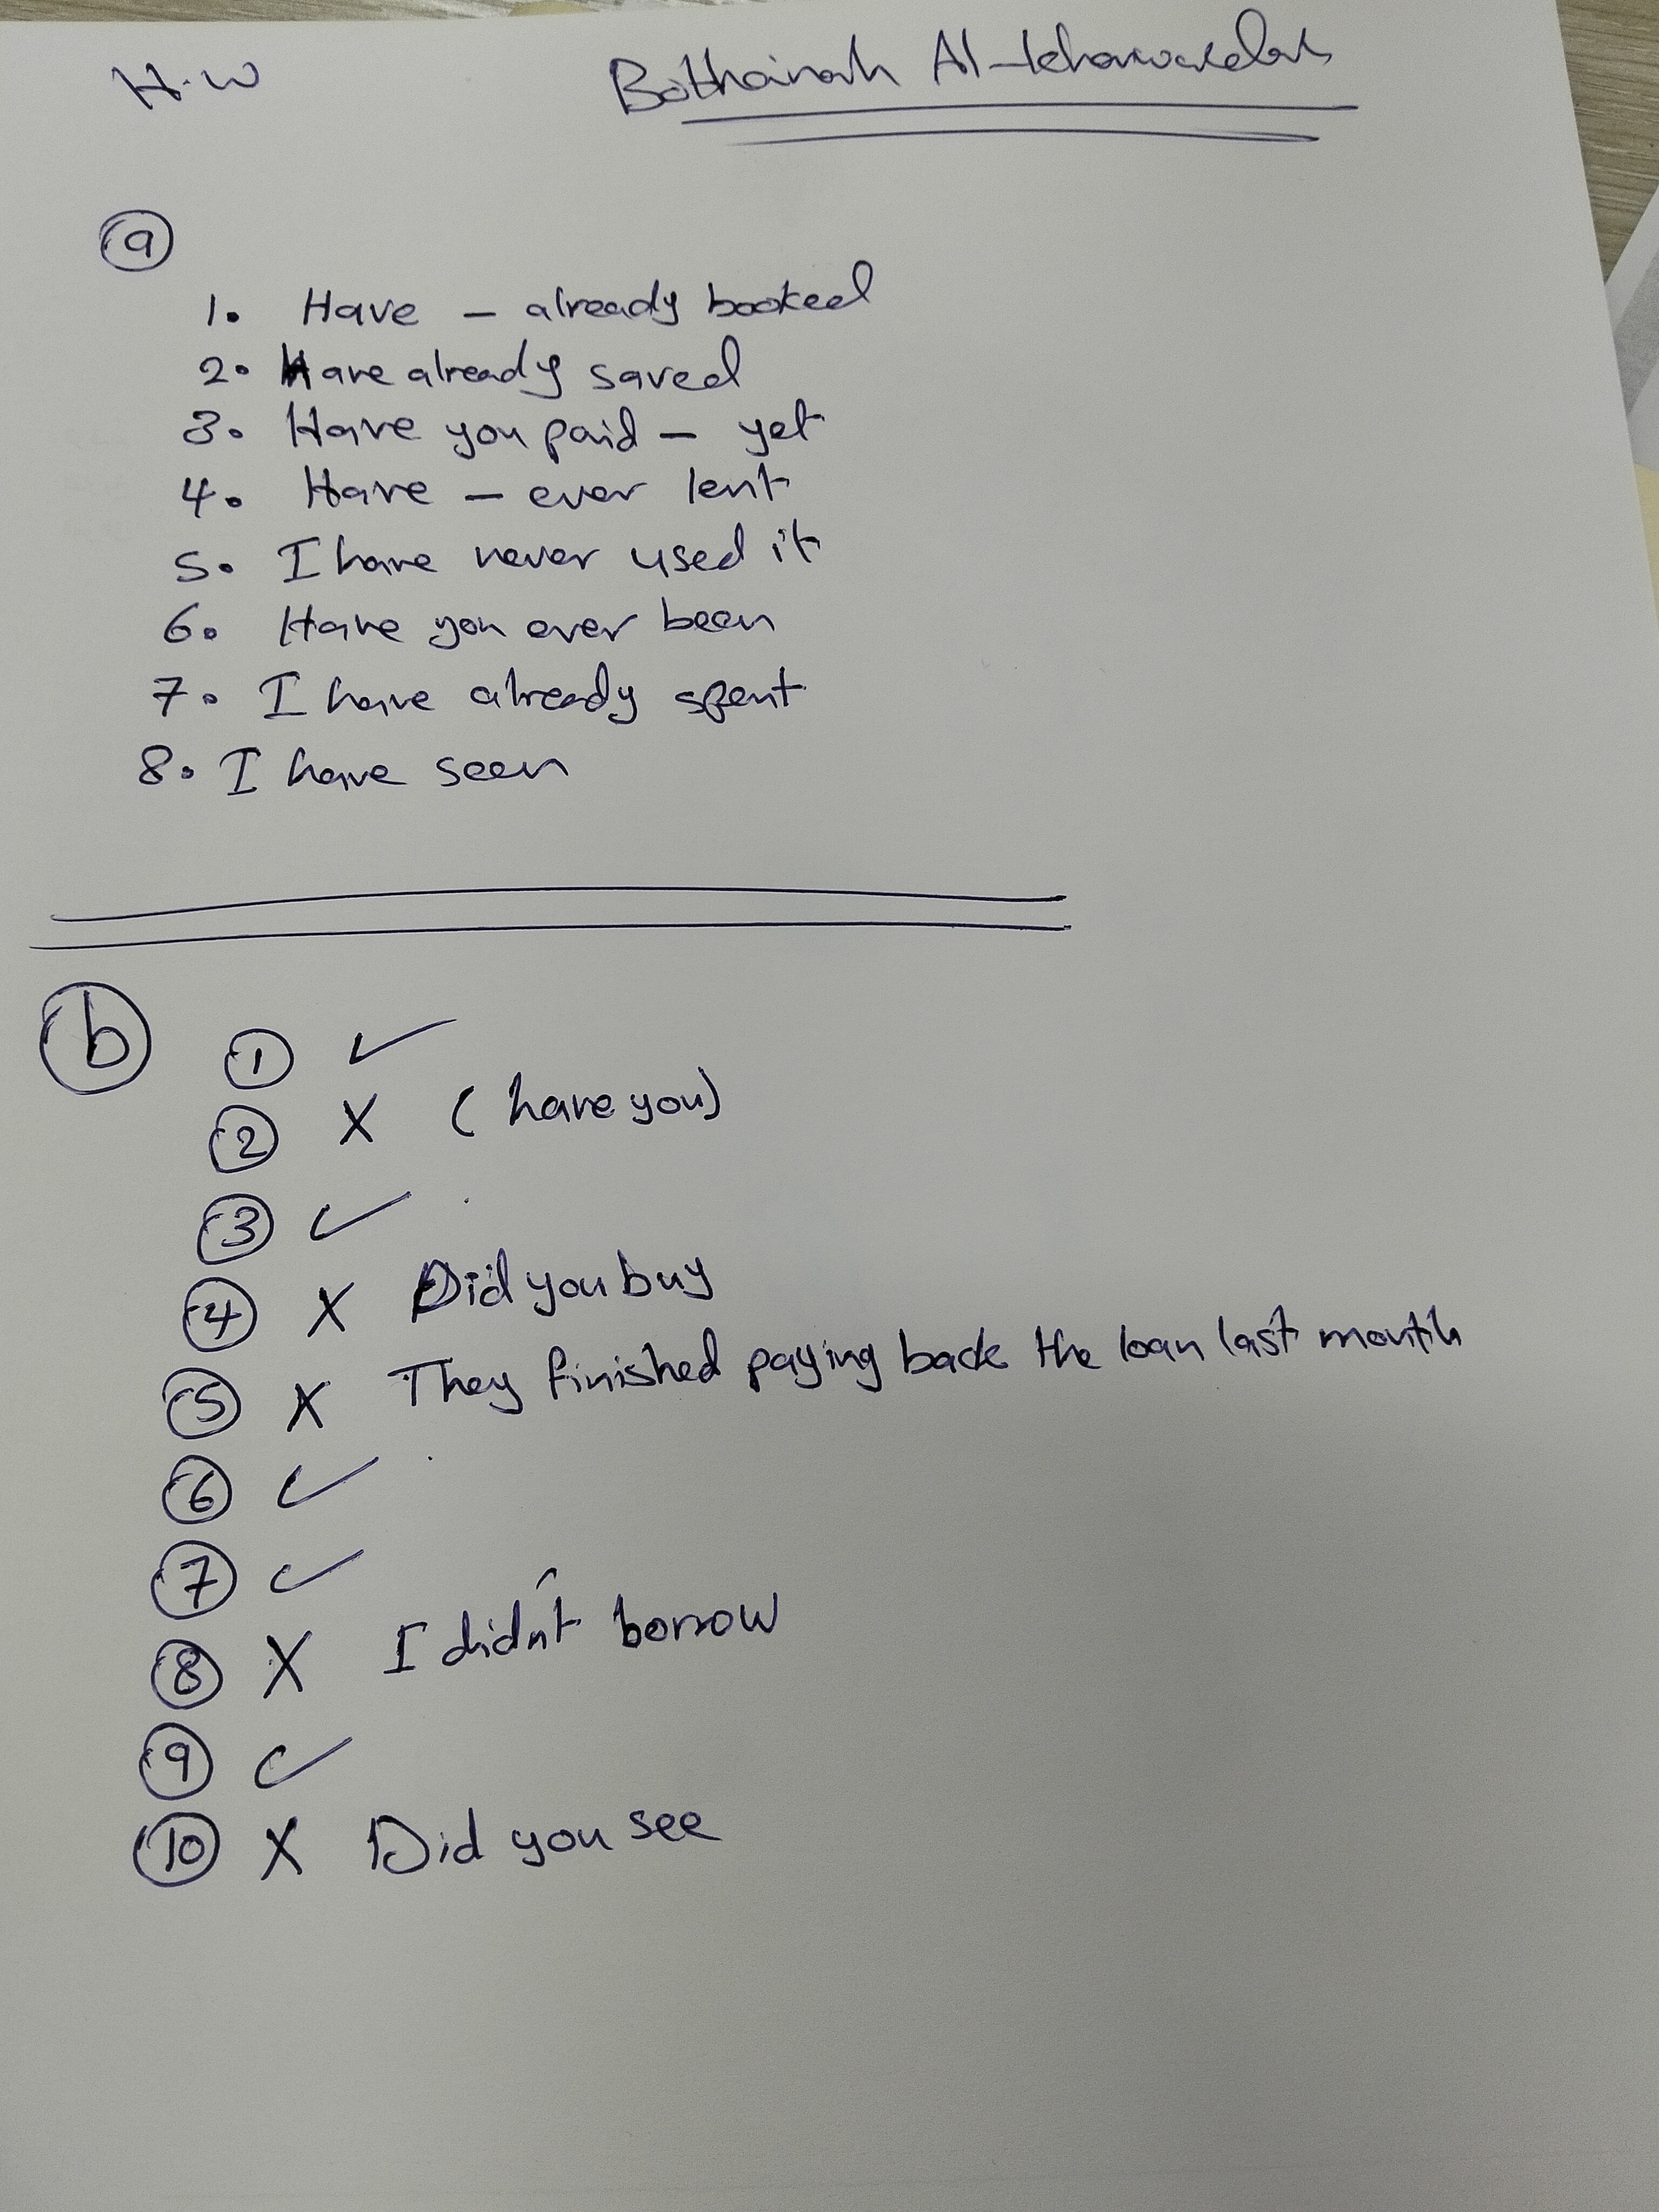 H.W Bothainah
a
1. Have - already booked
2. Have already saved
3. Have you paid - yet
4. Have - ever lent
5. I have never used it
6. Have you ever been
7. I have already spent
8. I have seen
b
1 ✓
2 X (have you)
3 ✓
4 X Did you buy
5 X They finished paying back the loan last month
6 ✓
7 ✓
8 X I didn't borrow
9 ✓
10 X Did you see